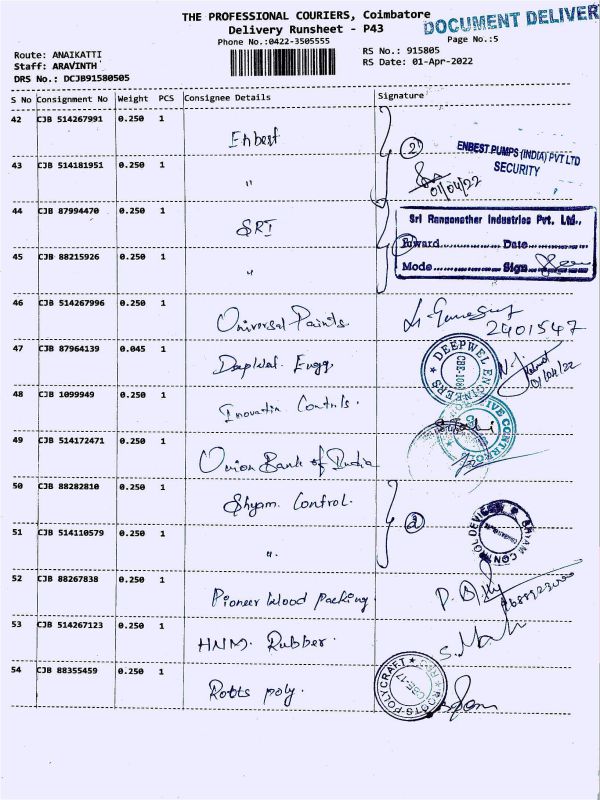 THE PROFESSIONAL COURIERS, Coimbatore
DOCUMENT DELIVER
Delivery Runsheet - P43
Phone No.:0422-3505555
Page No.:5
Route: ANAIKATTI
RS No.: 915805
Staff: ARAVINTH
RS Date: 01-Apr-2022
DRS No.: DCJB91580505
S No Consignment No Weight PCS Consignee Details Signature
42 CJB 514267991 0.250 1 Enbest
(2) ENBEST PUMPS (INDIA) PVT LTD
SECURITY
43 CJB 514181951 0.250 1 "
01/04/22
44 CJB 87994470 0.250 1 SRI
Sri Ranganathar Industries Pvt. Ltd.,
Inward.................. Date..................
45 CJB 88215926 0.250 1 "
Mode.................. Sign..................
46 CJB 514267996 0.250 1 Universal Paints.
2401547
47 CJB 87964139 0.045 1 Deepwel Engg,
DEEPWEL ENGINEERS
01/04/22
48 CJB 1099949 0.250 1 Inovativ Contrls.
49 CJB 514172471 0.250 1 Union Bank of India
50 CJB 88282810 0.250 1 Shyam Control.
(2)
51 CJB 514110579 0.250 1 "
52 CJB 88267838 0.250 1 Pioneer Wood Packing
53 CJB 514267123 0.250 1 HNM. Rubber.
54 CJB 88355459 0.250 1 Roots poly.
ROOTS POLYCRAFT
CBE-17